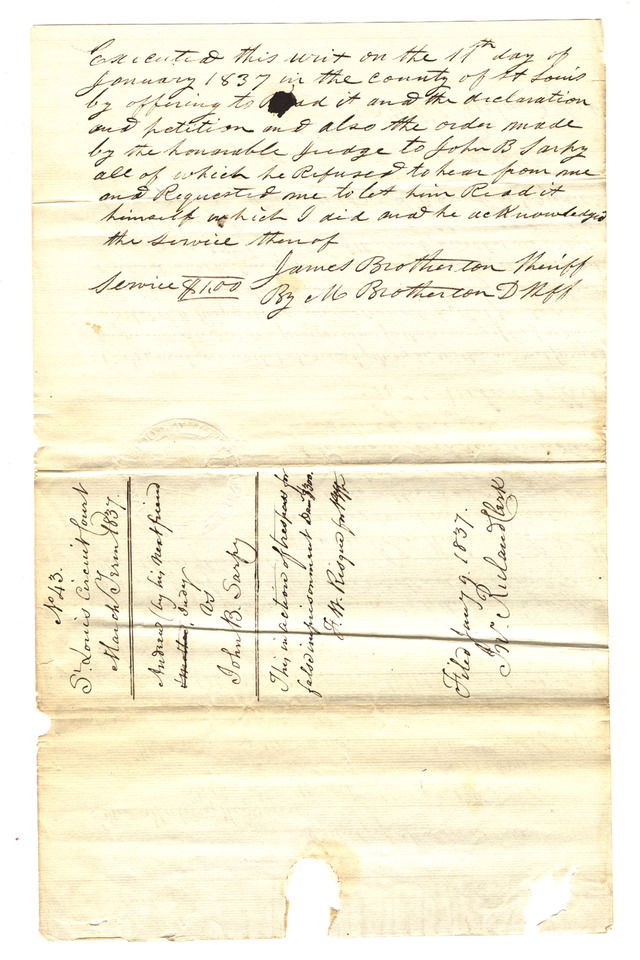 Executed this writ on the 11th day of
January 1837 in the county of St Louis
by offering to Read it and the declaration
and petition and also the order made
by the honorable Judge to John B Sarpy
all of which he Refused to hear from me
and Requested me to let him Read it
himself which I did and he acknowledged
the service therof
James Brotherton Sheriff
Service $1.00 By M Brotherton D Shff
No 43.
St Louis Circuit Court
March Term 1837.
Andrew (by his next friend
& mother, Judy
vs
John B. Sarpy
This in action of trespass for
false imprisonment Dam $300.
F. W. Risque for Plff
Filed Jany 9. 1837.
Jno Ruland Clerk